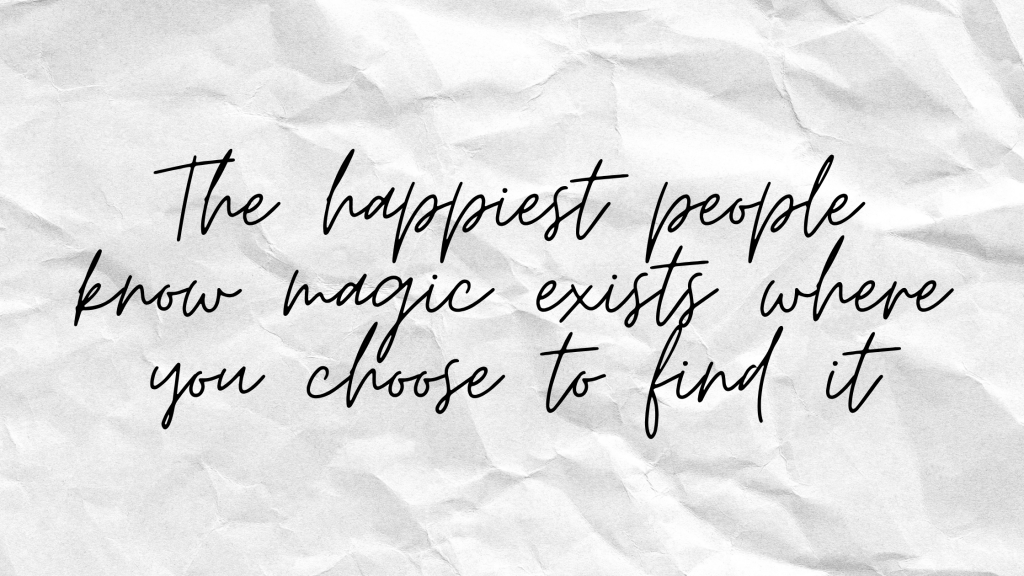 The happiest people
know magic exists where
you choose to find it